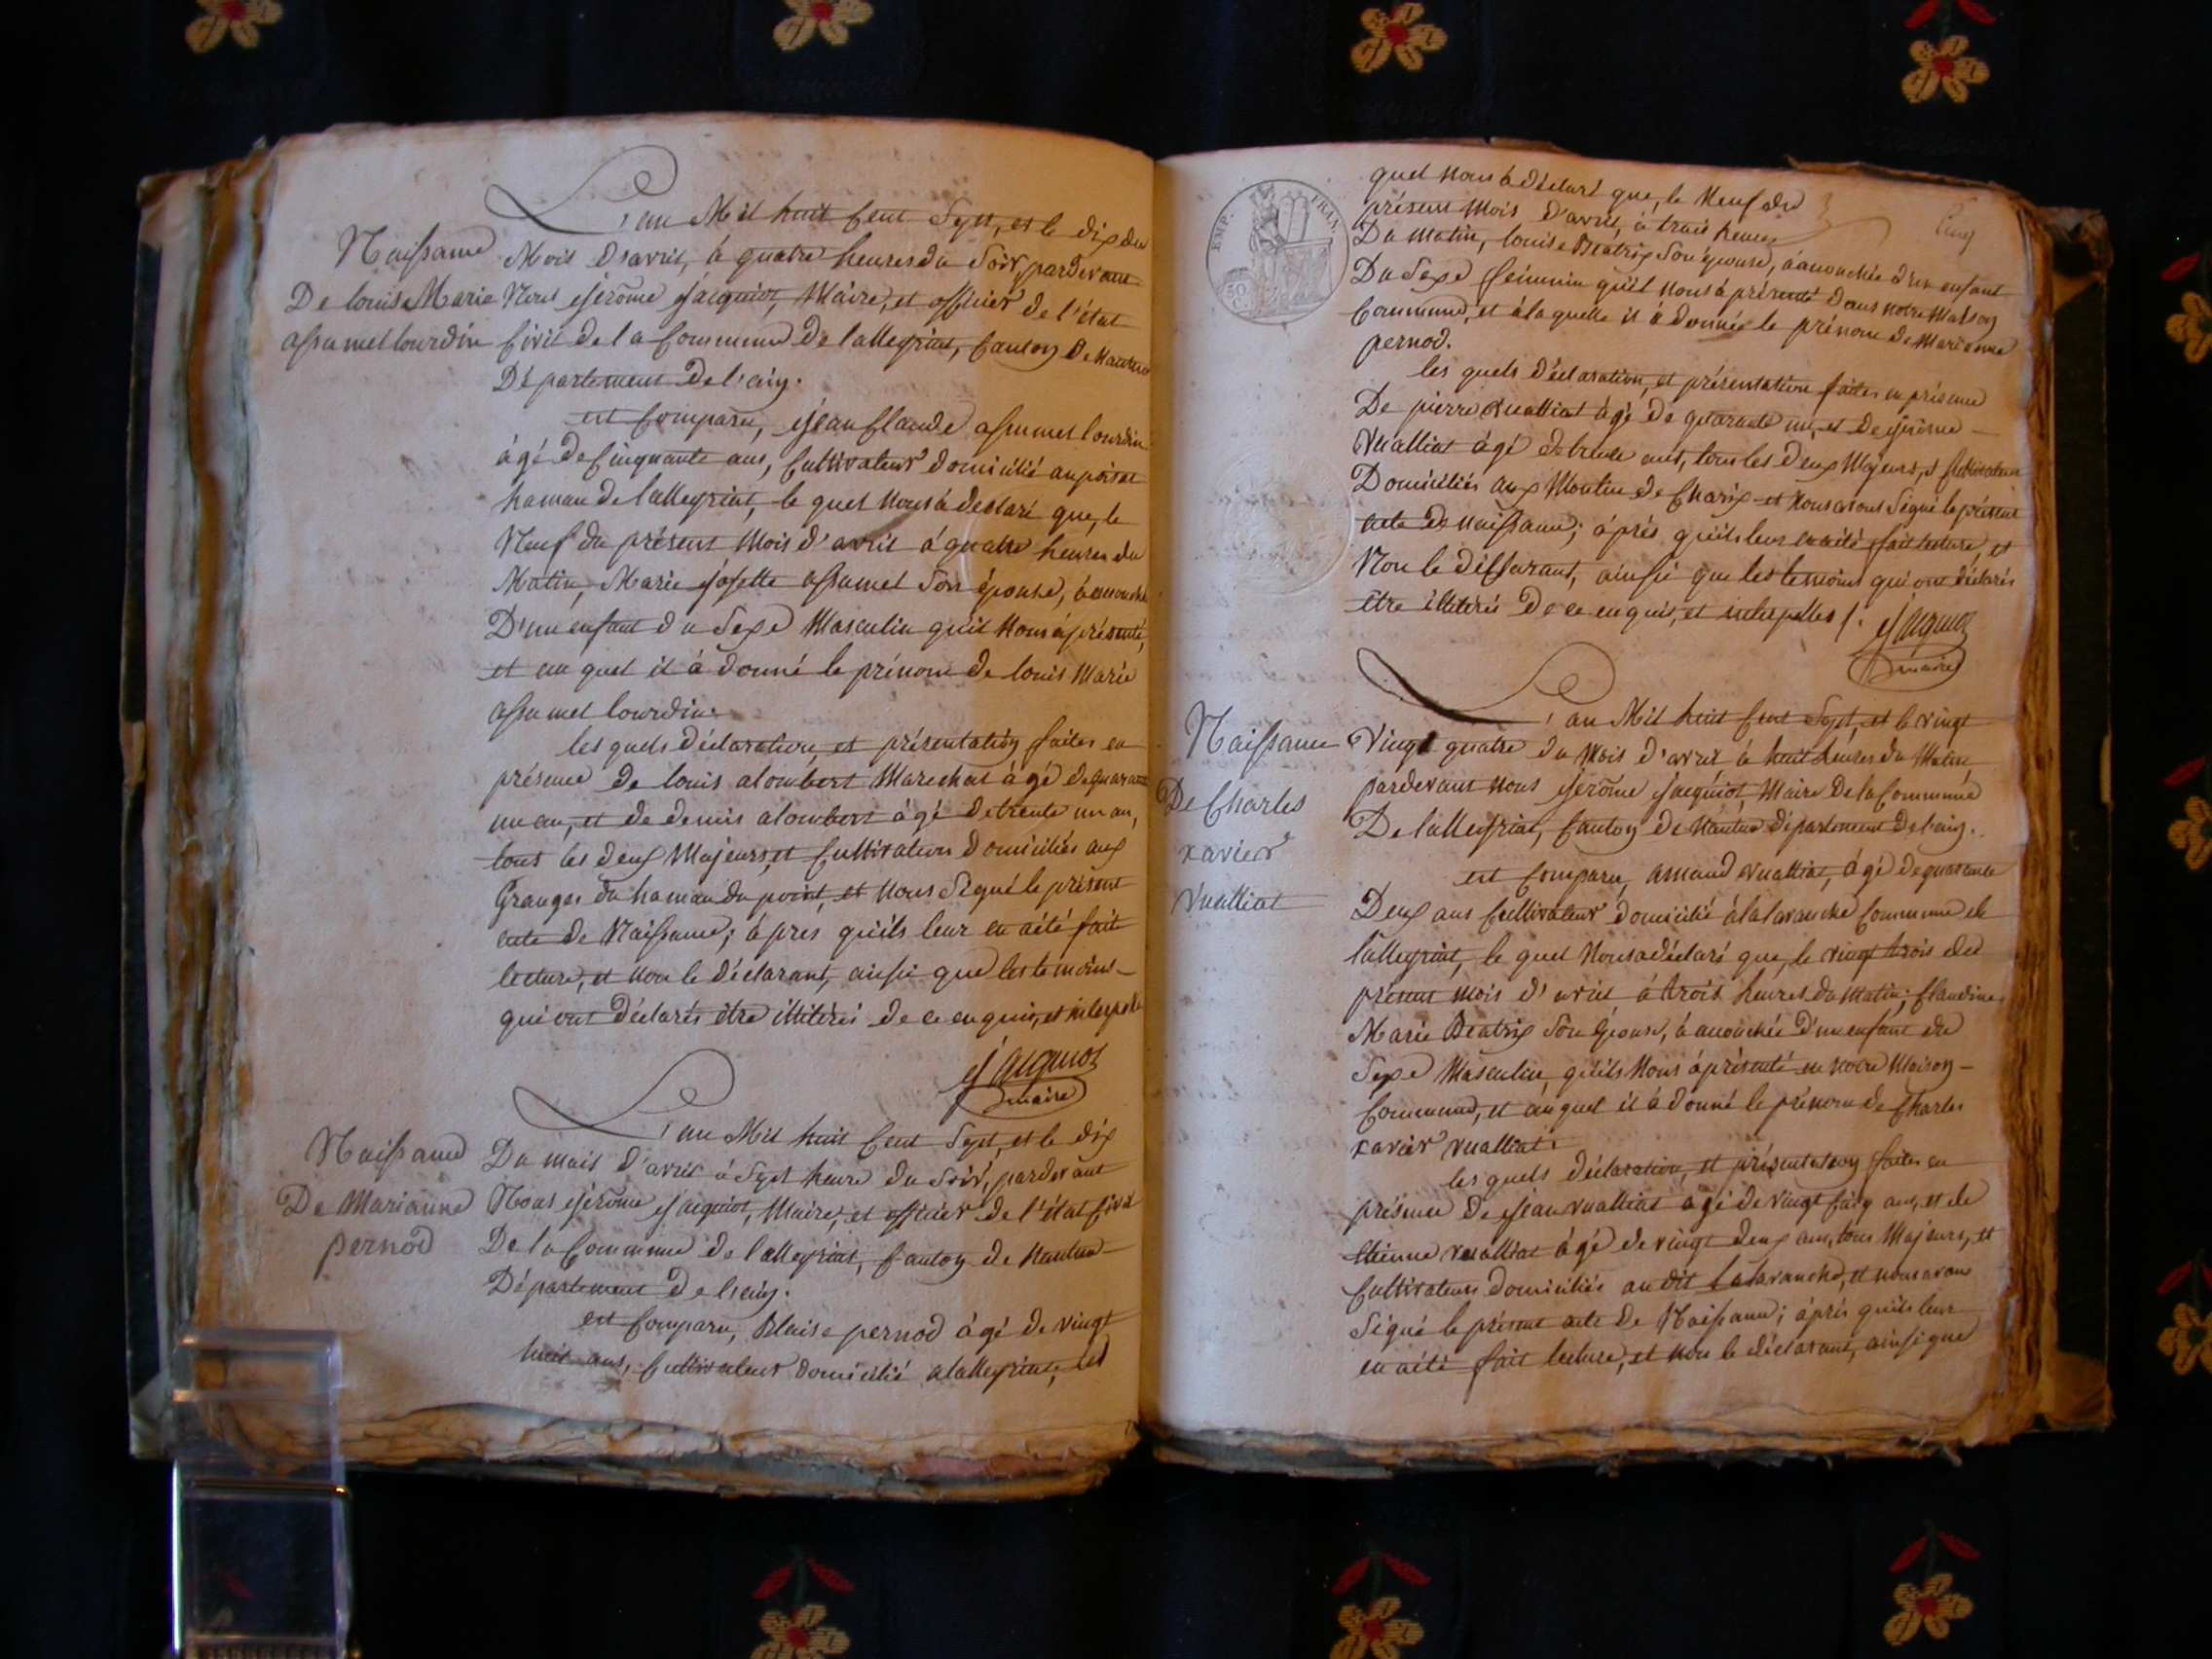 L'an Mil huit Cent Sept, et le dix du
Naissance
Mois d'avril, à quatre heures du Soir, pardevant
De louis Marie
Nous jérôme jacquiot, Maire, et officier de l'état
assumet lourdin
Civil de la Commune De lalleyriat, Canton De Nantua
Département De l'ain.
est Comparu, jean Claude assumet lourdin
âgé De Cinquante ans, Cultivateur domicilié au poizat
hamau de lalleyriat, le quel nous à déclaré que, le
Neuf du présent Mois d'avril à quatre heures du
Matin, Marie josette assumet Son épouse, à accouché
D'un enfant du Sexe Masculin quil Nous à présenté,
et au quel il à donné le prénom de louis Marie
assumet lourdin.
les quels déclaration, et présentation faites en
présence de louis alombert Marechal âgé de quarante
un an, et de denis alombert âgé de trente un an,
tous les deux Majeurs, et Cultivateurs domiciliés aux
Granges du hamau du poizat, et nous Signé le présent
acte de Naissance; à pres quils leur en aété fait
lecture, et non le déclarant, ainsi que les temoins
qui ont déclarés être illitérés de ce enquis, et interpelé
jacquiot
maire
L'an Mil huit Cent Sept, et le dix
Naissance
Du mois d'avril à Sept heure du Soir, pardevant
De Marianne
Nous jérôme jacquiot, Maire, et officier de l'état Civil
pernod
De la Commune de lalleyriat, Canton de Nantua
Département de l'ain.
est Comparu, Blaise pernod âgé de vingt
huit ans, Cultivateur domicilié a lalleyriat, le
quel nous à déclaré que, le Neuf du
EMP. FRAN.
présent Mois d'avril, à trois heures
Cinq
Du matin, louise Beatrix Son épouse, à accouchée d'un enfant
Du Sexe féminin quil nous à présenté dans notre Maison
50
C.
Commune, et à la quelle il à donnée le prénom de Marianne
pernod.
les quels déclaration, et présentation faites en présence
De pierre vualliat âgé de quarante un, et de jérôme
vualliat âgé de trente ans, tous les deux Majeurs, et Cultivateurs
Domiciliés aux Moulin de Charix et nous avons Signé le présent
acte de naissance; à prés quils leur en aété fait lecture, et
Non le déclarant, ainsi que les temoins qui ont déclarés
être illitérés De ce enquis, et interpellés /. jacquiot
maire
L'an Mil huit Cent Sept, et le vingt
Naissance
Vingt quatre du Mois d'avril à huit heures du Matin
pardevant nous jerôme jacquiot, Maire De la Commune
De Charles
De lalleyriat, Canton de Nantua département de l'ain.
xavier
est Comparu, amand vualliat, âgé de quarante
vualliat
Deux ans Cultivateur domicilié à la lavanche Commune de
lalleyriat, le quel nous a déclaré que, le vingt trois du
présent mois d'avril à trois heures du Matin, Claudine
Marie Beatrix Son épouse, à accouchée D'un enfant du
Sexe Masculin, quils Nous à présenté en notre Maison
Commune, et au quel il à donné le prénom de Charles
xavier vualliat.
les quels déclaration, et présentation faites en
présence De jean vualliat âgé de vingt Cinq ans, et de
Etienne vualliat âgé de vingt deux ans, tous Majeurs, et
Cultivateurs domiciliés au dit la lavanche, et nous avons
Signé le présent acte de Naissance; à prés quils leur
en aété fait lecture, et non le déclarant, ainsi que